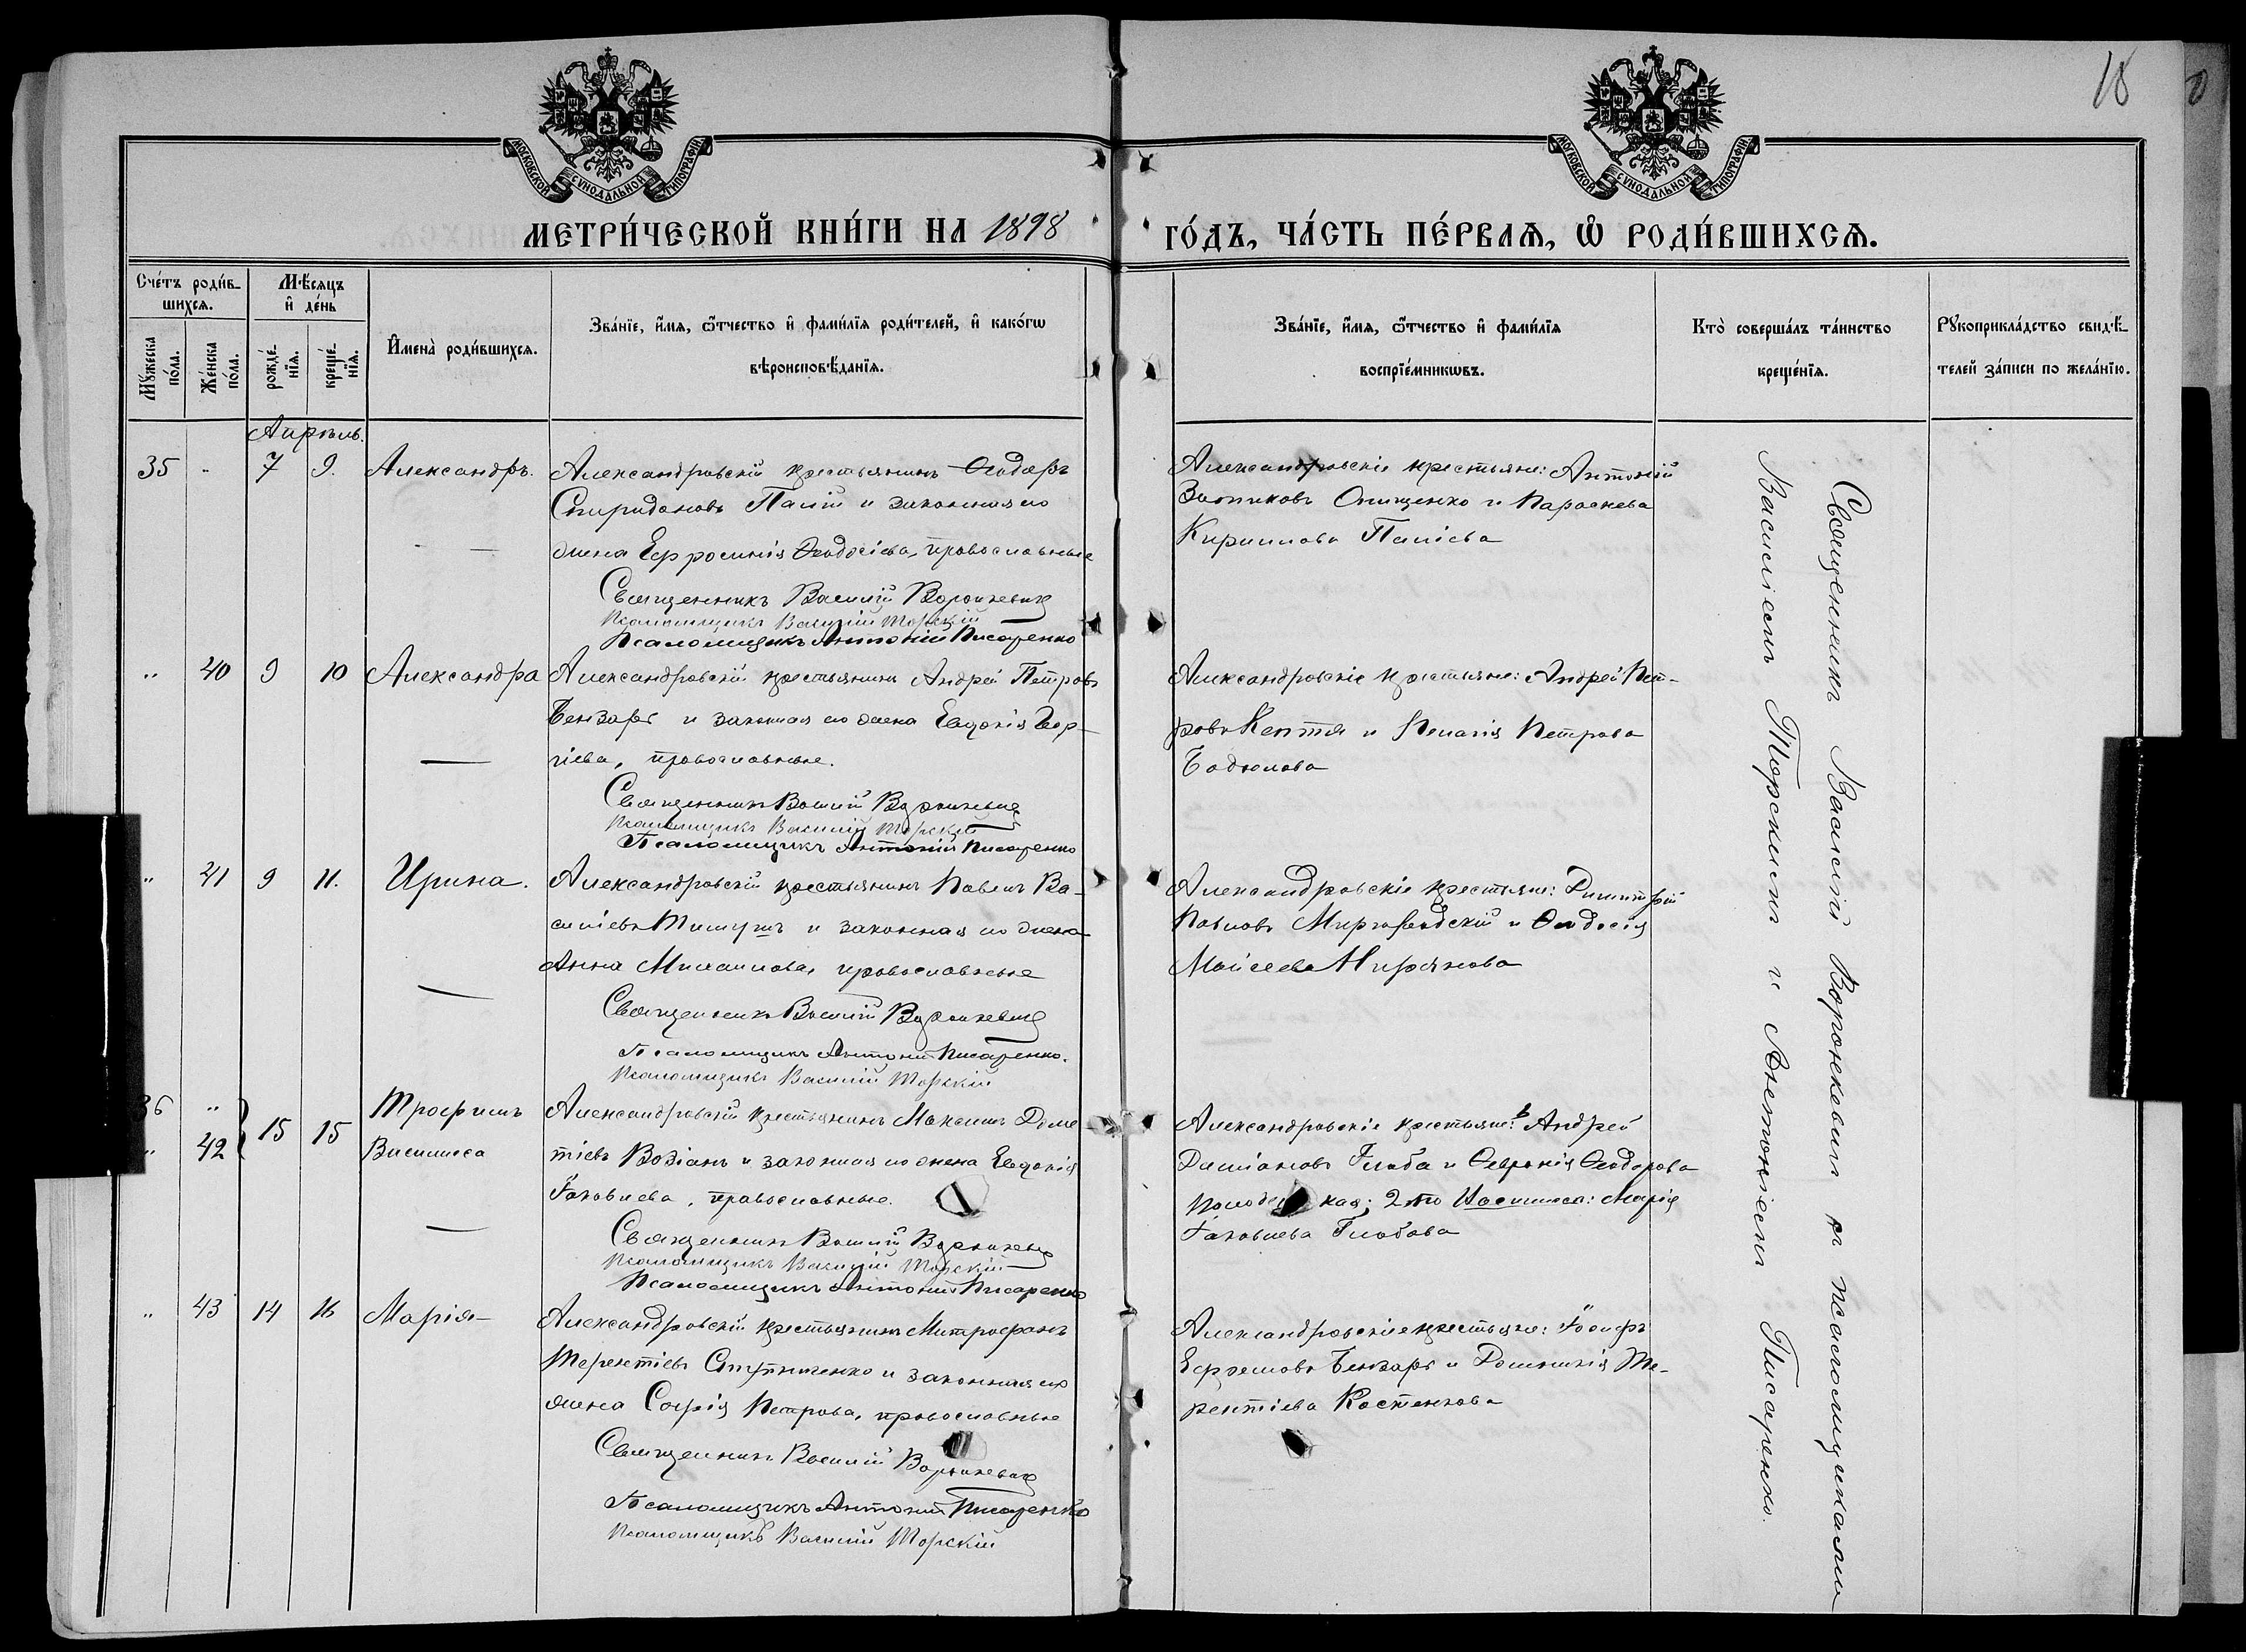 18
МОСКОВСКОЙ СѴНОДАЛЬНОЙ ТИПОГРАФІИ
МОСКОВСКОЙ СѴНОДАЛЬНОЙ ТИПОГРАФІИ
МЕТРИ́ЧЕСКОЙ КНИ́ГИ НА 1898 ГО́ДЪ, ЧА́СТЬ ПЕ́РВАѦ, Ѡ РОДИ́ВШИХСѦ.
Сче́тъ роди́в-
шихсѧ.
Мꙋ́жеска
по́ла.
Же́нска
по́ла.
Мѣ́сяцъ
и де́нь
рожде́-
нїѧ.
креще́-
нїѧ.
Имена̀ роди́вшихсѧ.
Зва́нїе, и́мѧ, ѿтчество и фами́лїѧ роди́телей, и како́гѡ
вѣроисповѣ́данїѧ.
Зва́нїе, и́мѧ, ѿтчество и фами́лїѧ
воспрїе́мникѡвъ.
Кто̀ соверша́лъ та́инство
креще́нїѧ.
Рꙋкоприкла́дство свидѣ́-
телей за́писи по жела́нїю.
Апрѣль.
35 " 7 9. Александръ.
Александровскій крестьянинъ Ѳеодоръ
Спиридоновъ Палій и законная его
жена Евфросинія Ѳеодосіева, православные
Священникъ Василій Воронкевичъ
Псаломщикъ Василій Торскій
Псаломщикъ Антоній Писаренко
Александровскіе крестьяне: Антоній
Онищенко и Параскева
Кириллова Паліева
" 40 9 10 Александра
Александровскій крестьянинъ Андрей Петровъ
Бензарь и законная его жена Евдокія Геор-
гіева, православные.
Священникъ Василій Воронкевичъ
Псаломщикъ Василій Торскій
Псаломщикъ Антоній Писаренко
Александровскіе крестьяне: Андрей Пет-
ровъ Кептя и Пелагія Петрова
Бодюлова
" 41 9 11. Ирина.
Александровскій крестьянинъ Павелъ Ва-
силіевъ и законная его жена
Анна Михаилова, православные
Священникъ Василій Воронкевичъ
Псаломщикъ Антоній Писаренко.
Псаломщикъ Василій Торскій
Александровскіе крестьяне: Димитрій
Павловъ Миргородскій и Ѳеодосія
Моисеева
36 "
" 42
15 15
Трофимъ
Василиса
Александровскій крестьянинъ Максимъ Доме-
тіевъ Возіанъ и законная его жена Евдокія
Іаковлева, православные.
Священникъ Василій Воронкевичъ
Псаломщикъ Василій Торскій
Псаломщикъ Антоній Писаренко
Александровскіе крестьяне: Андрей
Даміановъ Глоба и Ѳеодорова
кая; 2-го Василиса: Марія
Іаковлева Глобова
" 43 14 16 Марія
Александровскій крестьянинъ Митрофанъ
Терентіевъ и законная его
жена Софія Петрова, православные
Священникъ Василій Воронкевичъ
Псаломщикъ Антоній Писаренко
Псаломщикъ Василій Торскій
Александровскіе крестьяне: Іосифъ
Ефремовъ Бензарь и Домникія Те-
рентіева Костенкова
Священникъ Василій Воронкевичъ съ псаломщиками
Василіемъ Торскимъ и Антоніемъ Писаренко.